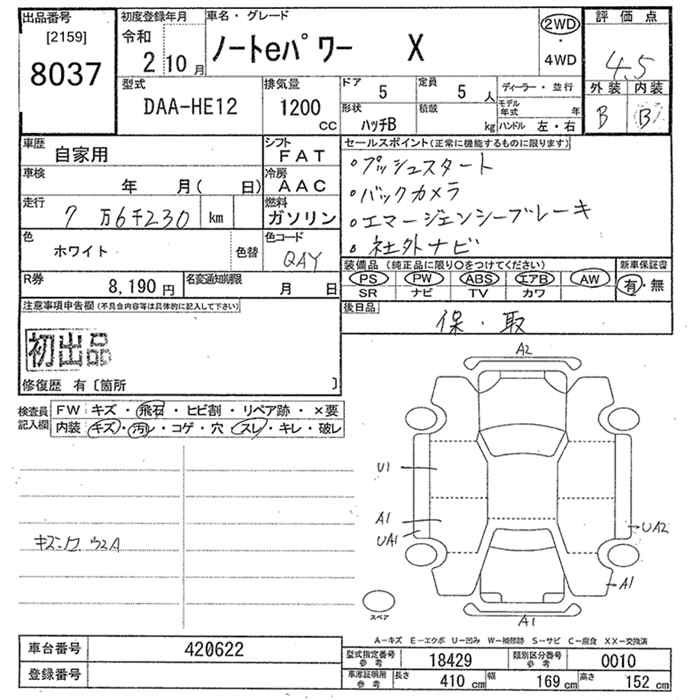 出品番号
[2159]
8037
初度登録年月
令和
2 10 月
車名・グレード
ノートeパワー X
2WD
・
4WD
評価点
4.5
外装 内装
B B
型式
DAA-HE12
排気量
1200
CC
ドア
5
定員
5 人
形状
ハッチB
積載
kg
ディーラー・並行
モデル年式 年
ハンドル 左・右
車歴
自家用
シフト
FAT
車検
年 月( 日)
冷房
AAC
走行
7 万6千230 km
燃料
ガソリン
色
ホワイト
色替
色コード
QAY
R券
8,190 円
名変通知期限
月 日
セールスポイント(正常に機能するものに限ります)
・プッシュスタート
・バックカメラ
・エマージェンシーブレーキ
・社外ナビ
装備品(純正品に限り○をつけてください)
PS PW ABS エアB AW
SR ナビ TV カワ
新車保証書
有・無
後日品
保・取
注意事項申告欄(不具合内容等は具体的に記入して下さい)
初出品
修復歴 有〔箇所 〕
検査員
記入欄
FW キズ・飛石・ヒビ割・リペア跡・×要
内装 キズ・汚レ・コゲ・穴・スレ・キレ・破レ
A2
U1
A1
UA1
UA2
A1
A1
スペア
A-キズ E-エクボ U-凹み W-補修跡 S-サビ C-腐食 XX-交換済
車台番号 420622
登録番号
型式指定番号
参考
18429
類別区分番号
参考
0010
車庫証明用
参考
長さ 410 cm 幅 169 cm 高さ 152 cm